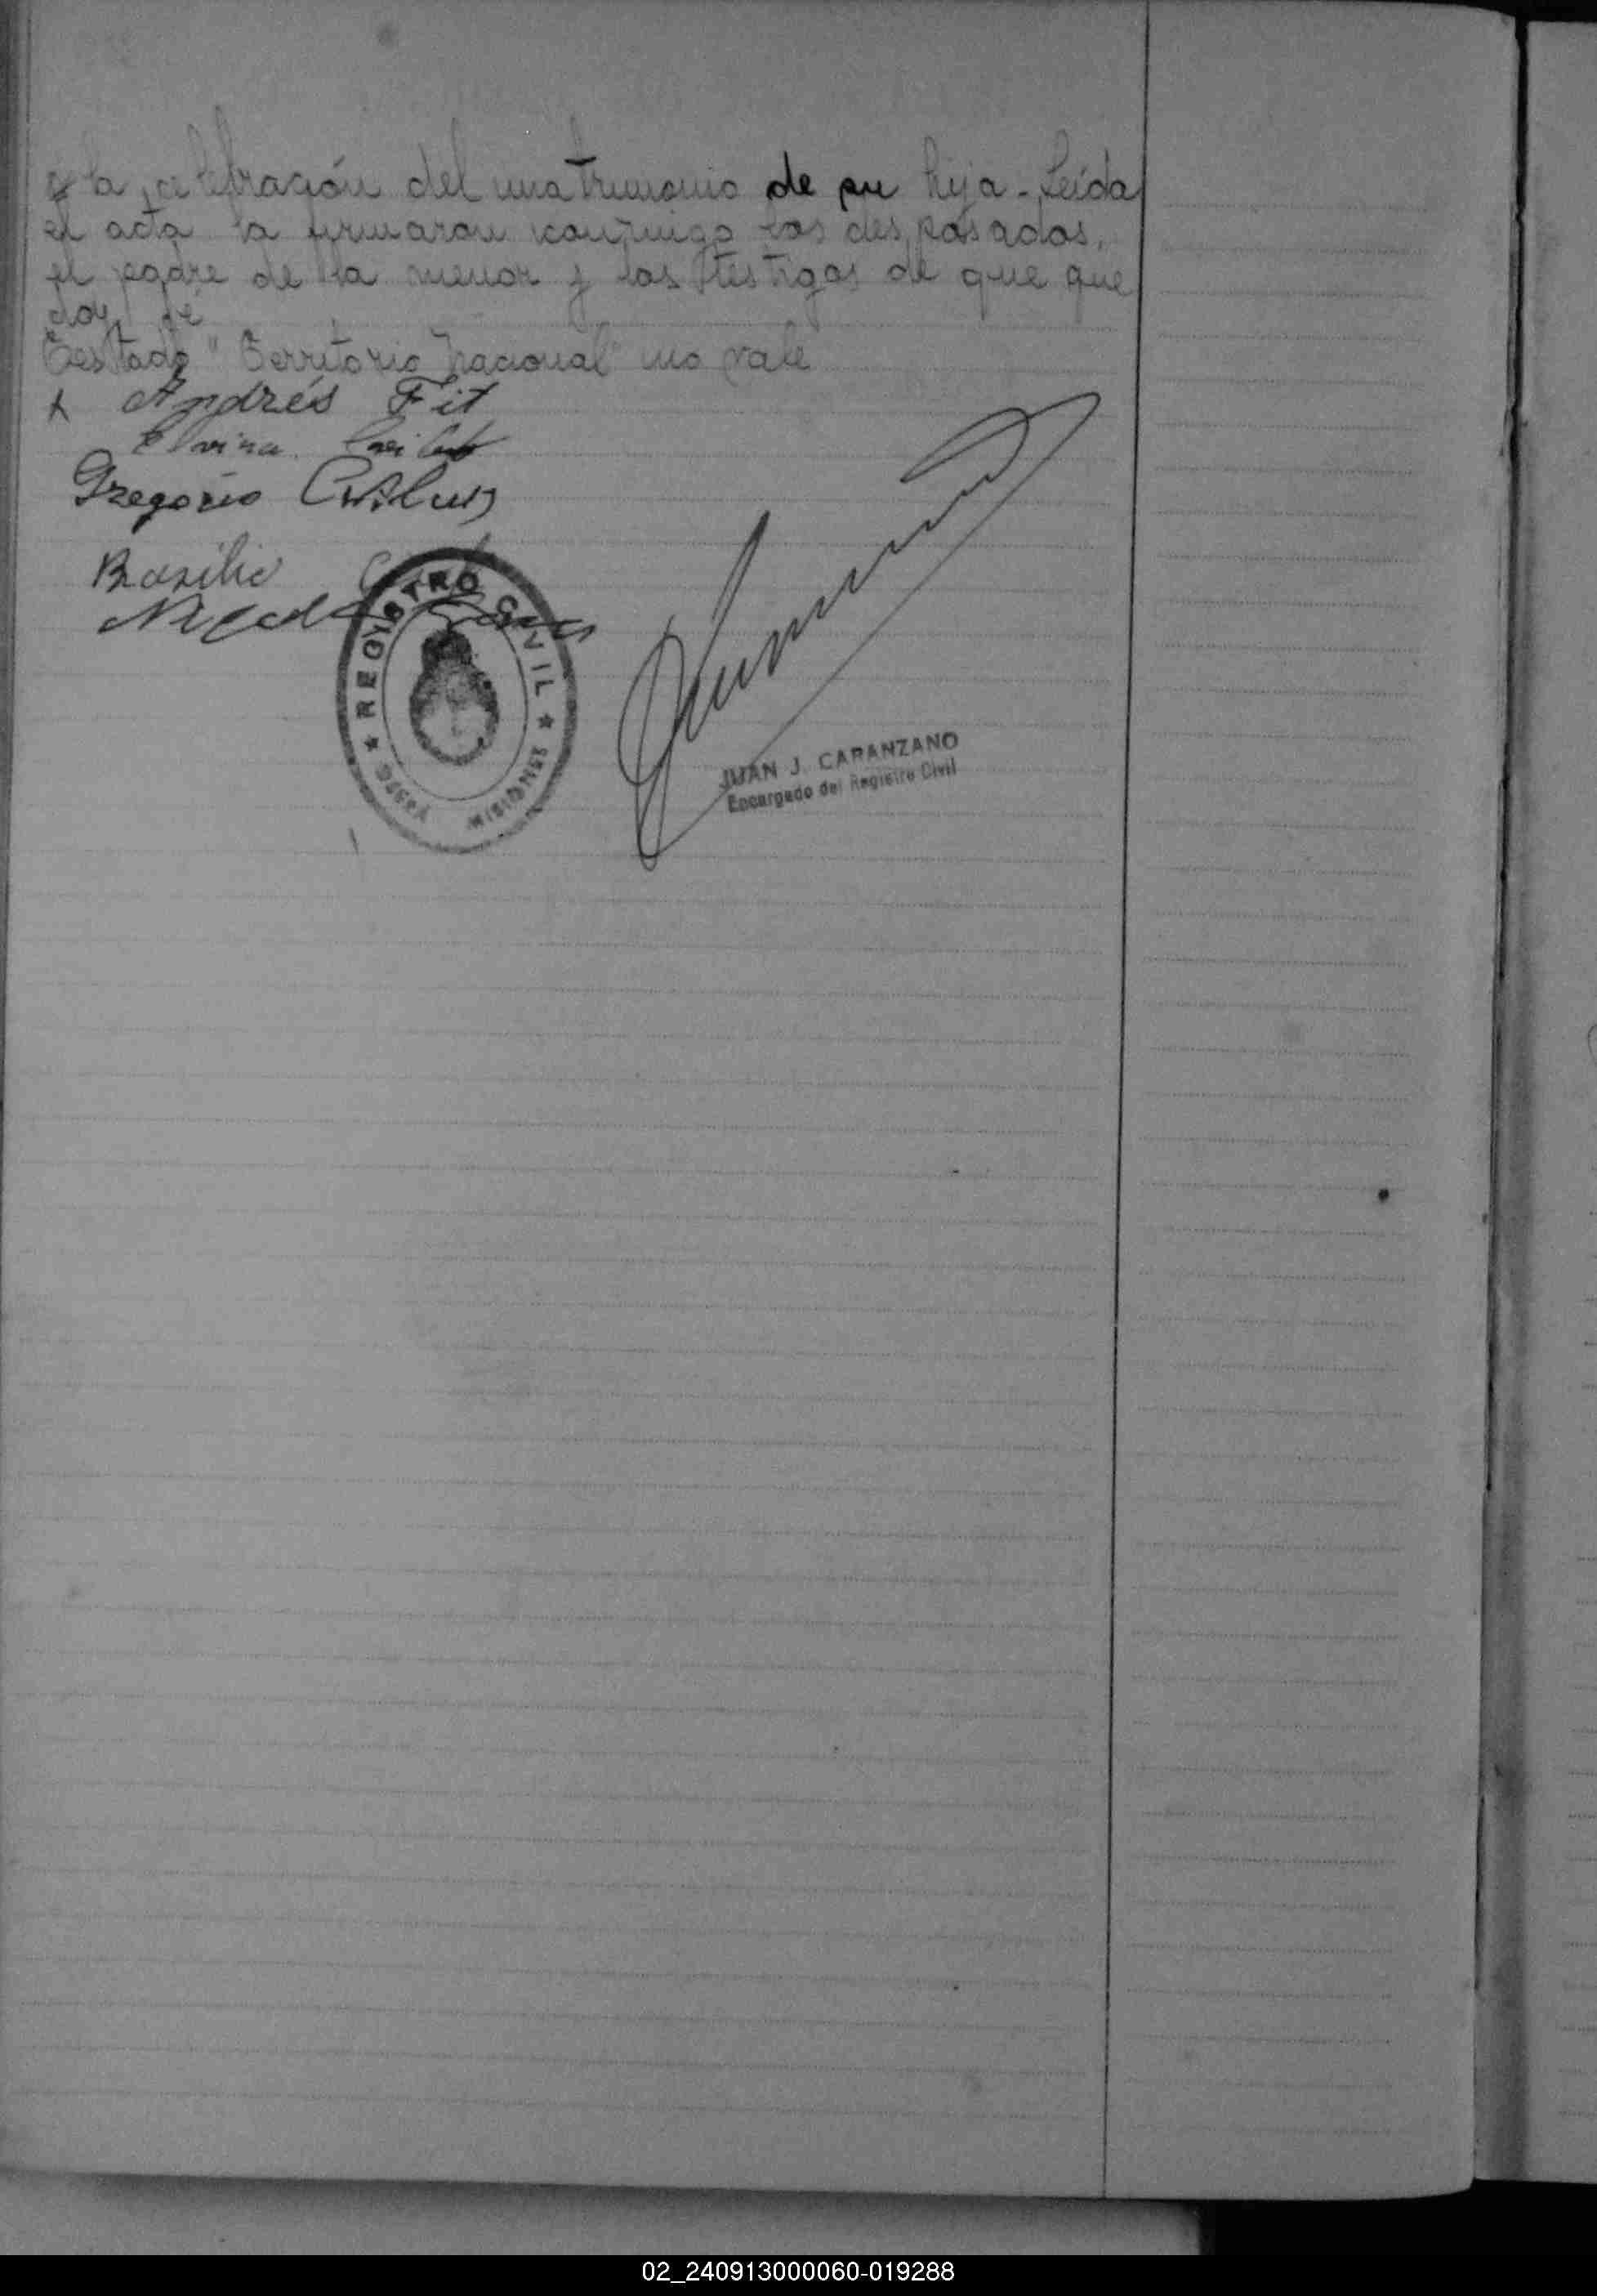 a la celebración del matrimonio de su hija - Leída
el acta la firmaron conmigo los desposados,
el padre de la menor y los testigos de que que
doy fé
Testado "Territorio Nacional" no vale
Andrés Fit
Elvina
Gregorio
Basilio
REGISTRO CIVIL
OBERÁ MISIONES
JUAN J. CARANZANO
Encargado del Registro Civil
02_240913000060-019288